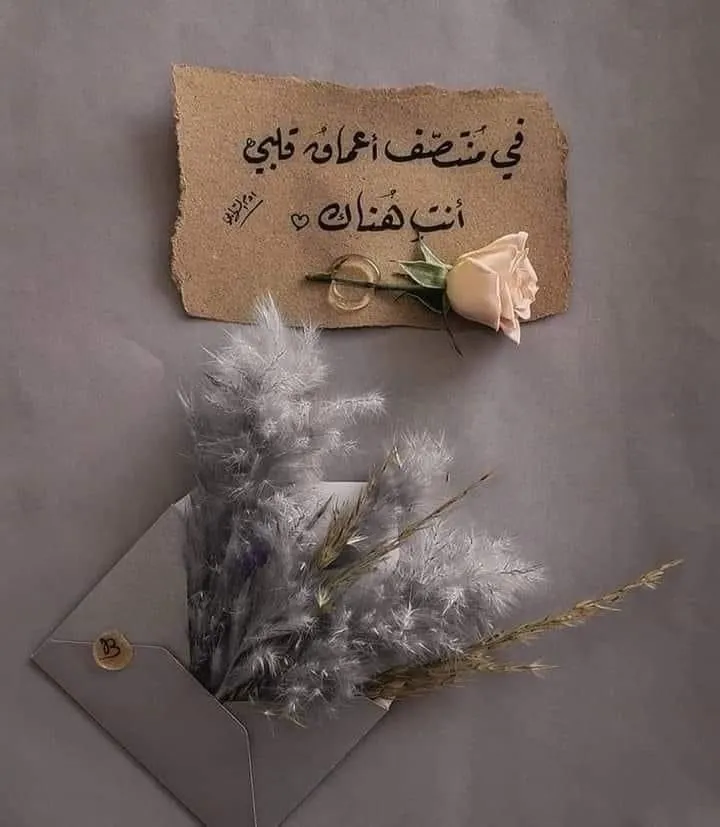 في مُنتصّف أعماق قلبي
أنتِ هُناك ♡